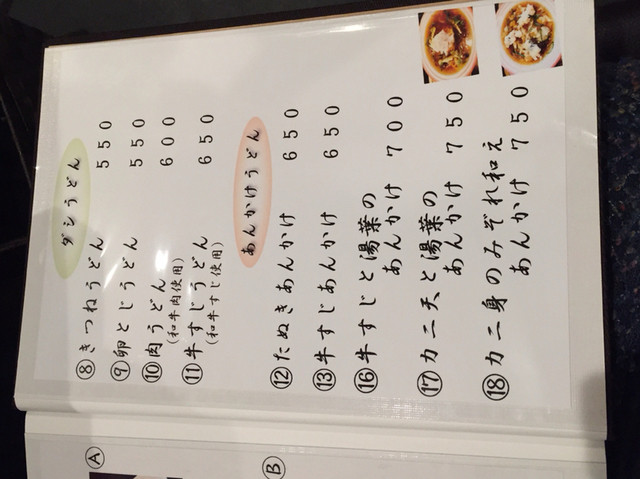 ダシうどん
⑧きつねうどん 550
⑨卵とじうどん 550
⑩肉うどん 600
(和牛肉使用)
⑪牛すじうどん 650
(和牛すじ使用)
あんかけうどん
⑫たぬきあんかけ 650
⑬牛すじあんかけ 650
⑯牛すじと湯葉の
あんかけ 700
⑰カニ天と湯葉の
あんかけ 750
⑱カニ身のみぞれ和え
あんかけ 750
Ⓐ
Ⓑ